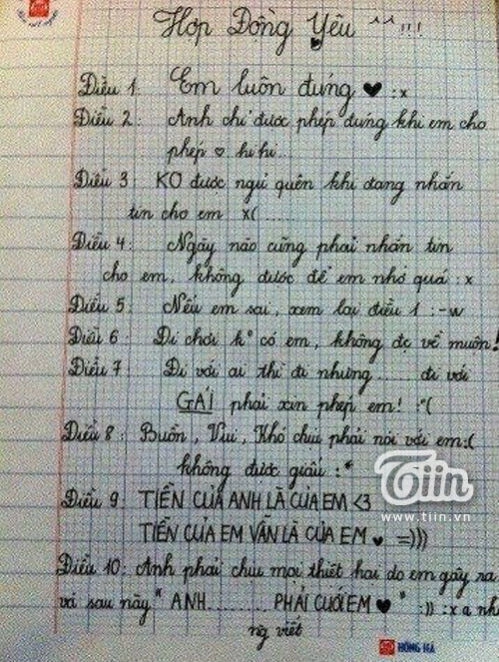 Hợp Đồng Yêu ^^!!!
Điều 1: Em luôn đúng ♥ :x
Điều 2: Anh chỉ được phép đúng khi em cho
phép ♡ hi hi...
Điều 3: KO được ngủ quên khi đang nhắn
tin cho em x( .....
Điều 4: Ngày nào cũng phải nhắn tin
cho em, không được để em nhớ quá :x
Điều 5: Nếu em sai, xem lại điều 1 :-w
Điều 6: Đi chơi k° có em, không đc về muộn!
Điều 7: Đi với ai thì đi nhưng ..... đi với
GÁI phải xin phép em! :"(
Điều 8: Buồn, Vui, Khó chịu phải nói với em:(
không được giấu :*
Điều 9: TIỀN CỦA ANH LÀ CỦA EM <3
TIỀN CỦA EM VẪN LÀ CỦA EM ♥ =)))
Điều 10: Anh phải chịu mọi thiệt hại do em gây ra
và sau này " ANH.......... PHẢI CƯỚI EM ♥ " :)) :x a nh
ng viết
Tiin
www.tiin.vn
HỒNG HÀ